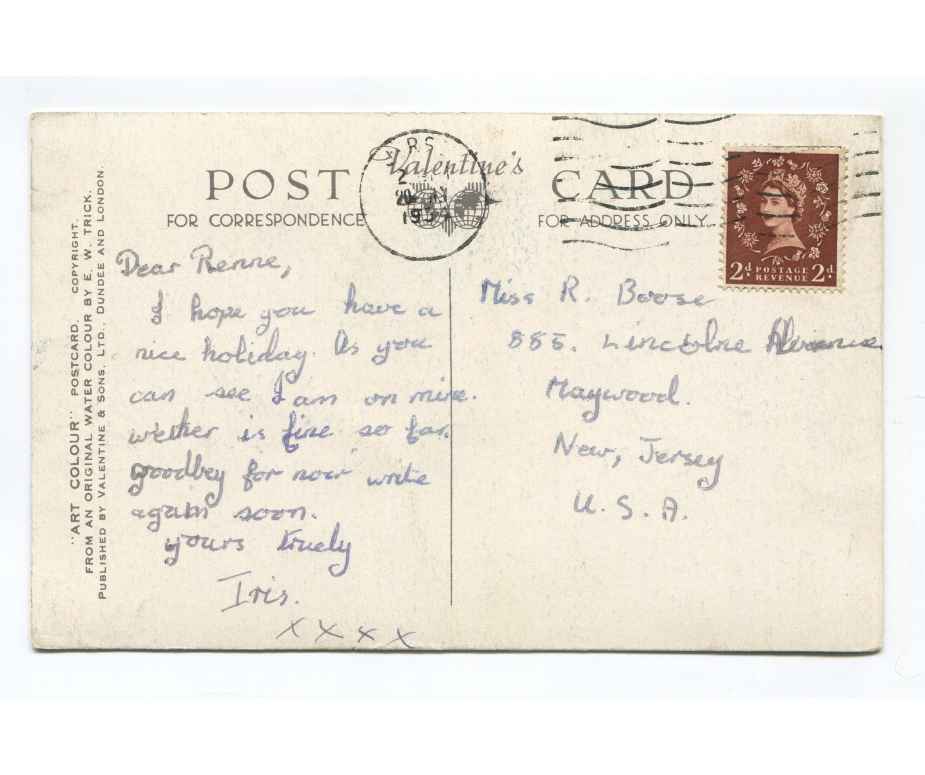 "ART COLOUR" POSTCARD. COPYRIGHT.
FROM AN ORIGINAL WATER COLOUR BY E. W. TRICK.
PUBLISHED BY VALENTINE & SONS, LTD., DUNDEE AND LONDON.
POST Valentine's CARD
FOR CORRESPONDENCE FOR ADDRESS ONLY.
Dear Renne,
I hope you have a
nice holiday. As you
can see I am on mine.
wether is fine so far.
goodbey for now write
again soon.
yours truely
Iris.
xxxx
2d POSTAGE REVENUE 2d
Miss R. Boose
885. Lincolne
Maywood.
New, Jersey
U. S. A.